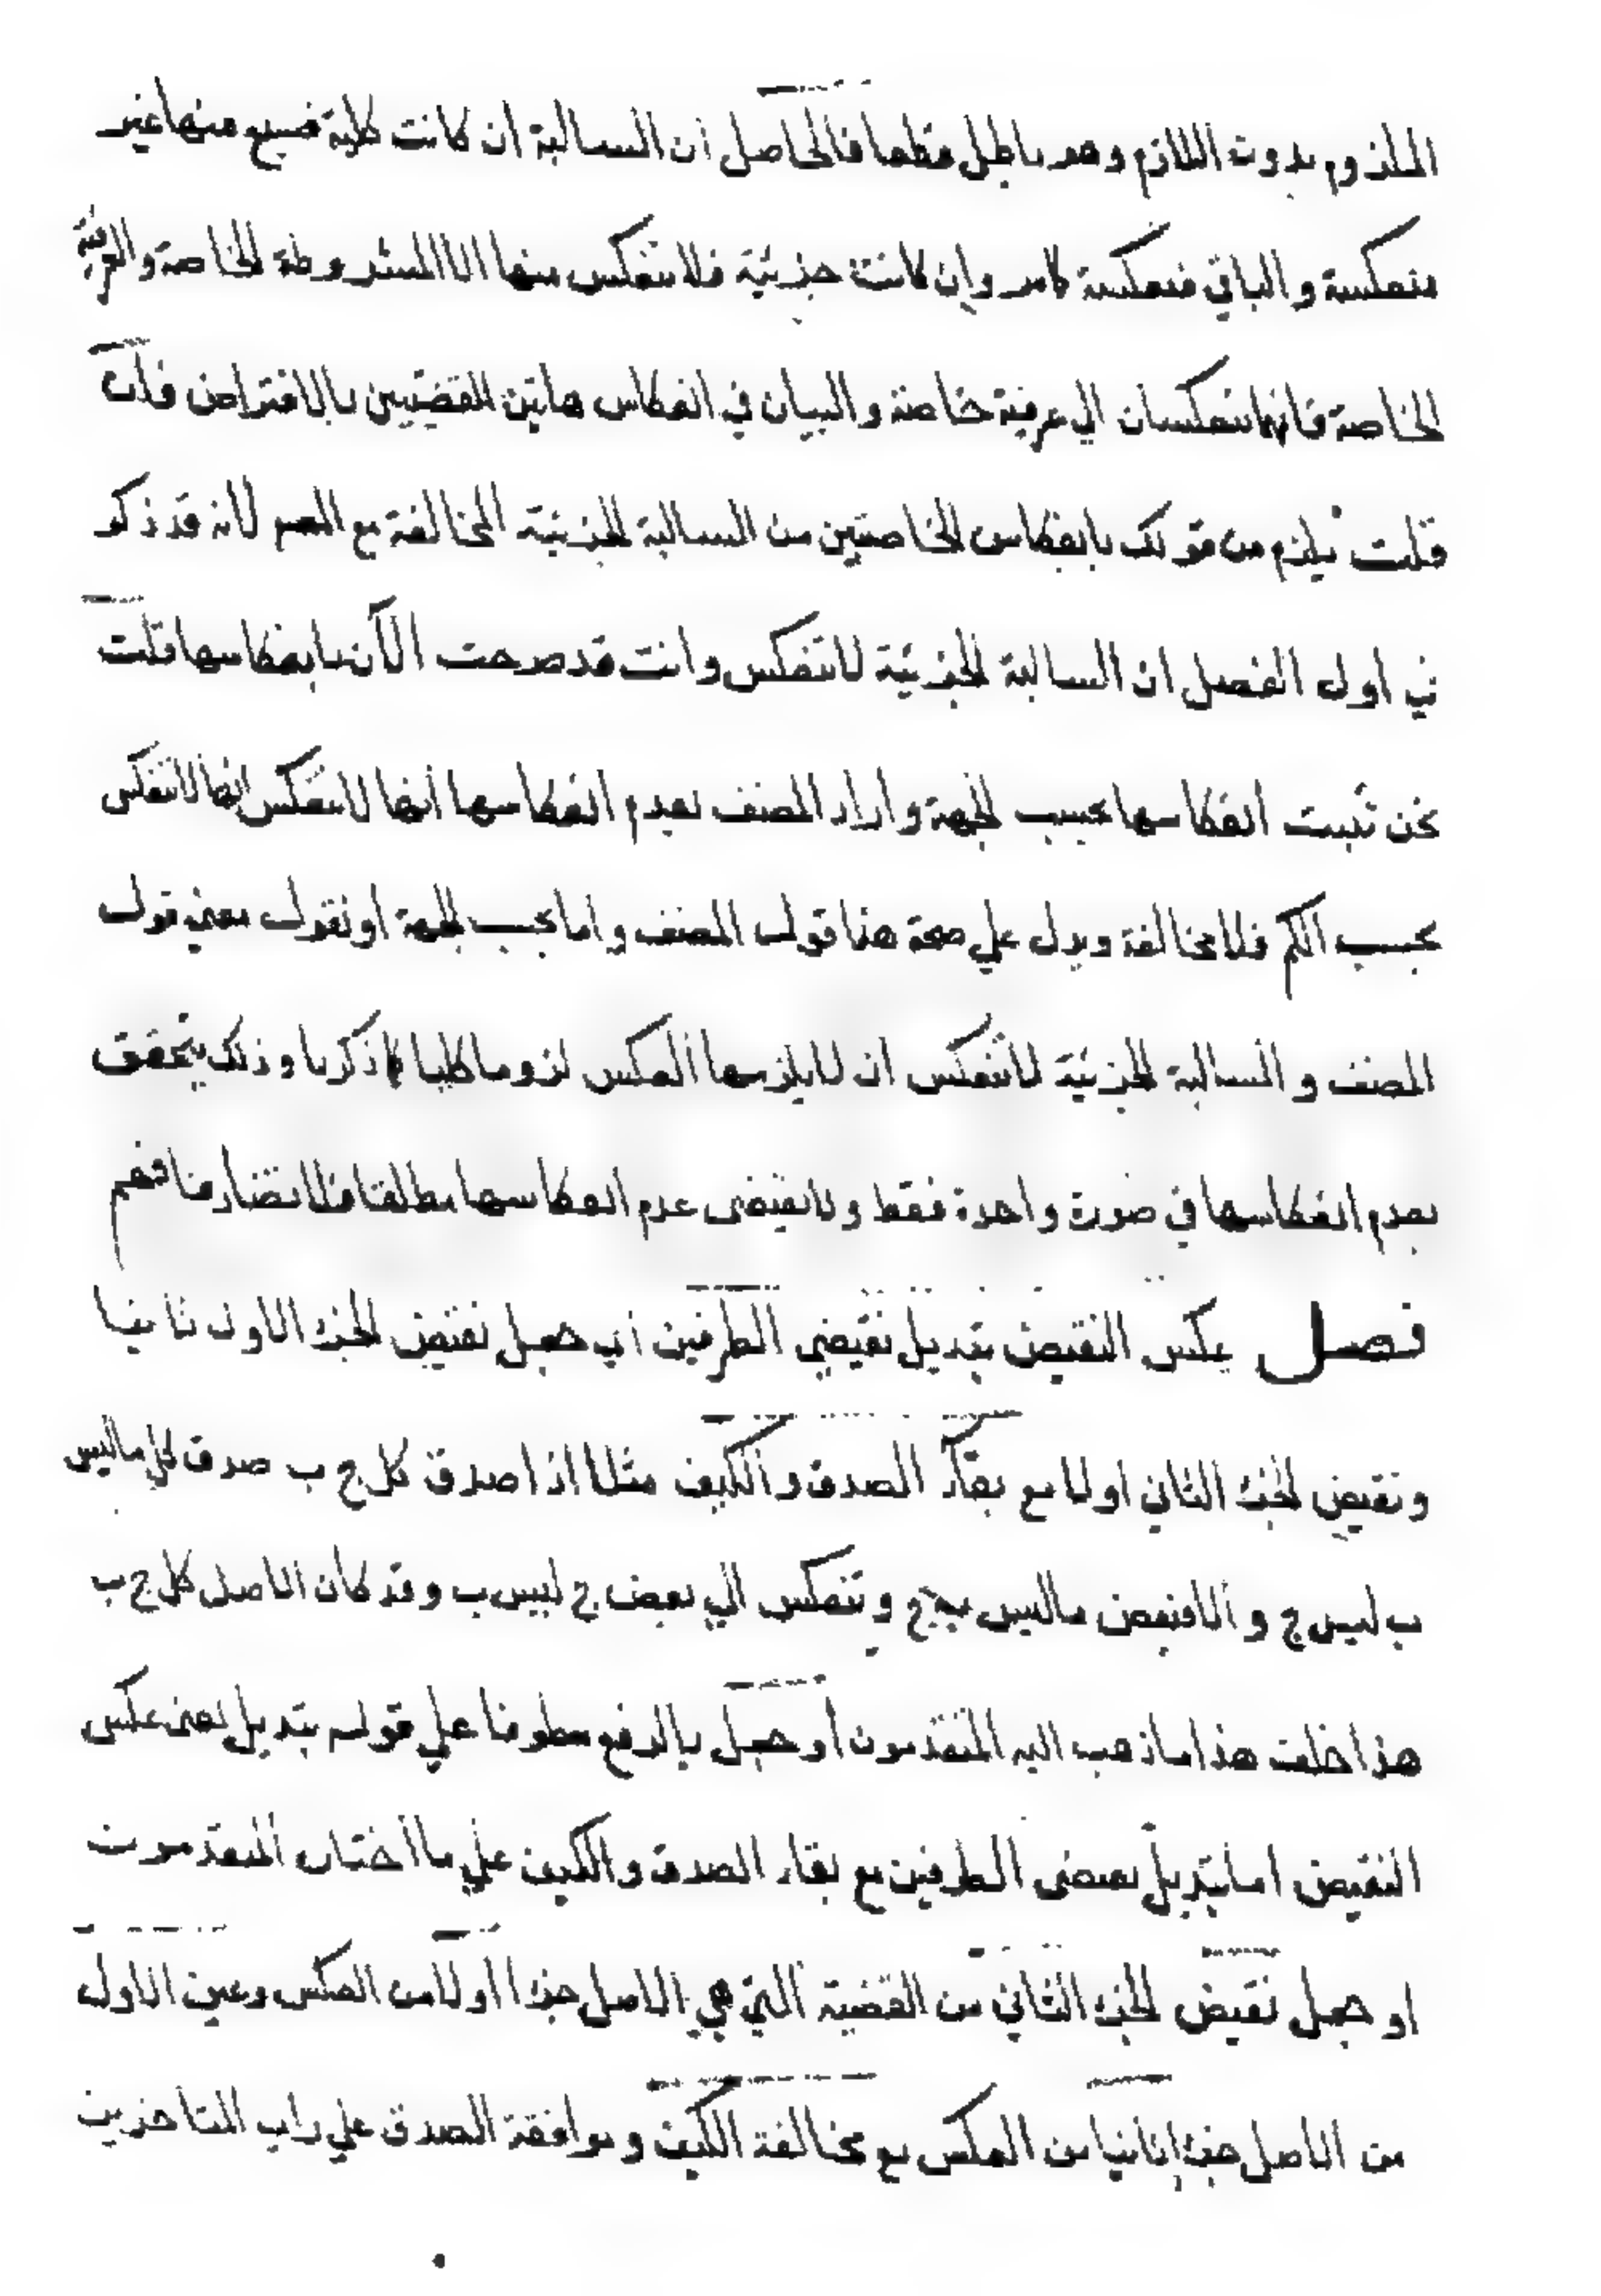 الملزوم بدون اللازم وهو باطل قطعا فالحاصل ان السالبة ان كانت كلية فسبع منها غير
منعكسة والباقي منعكسة كامر وان كانت جزئية فلا تنعكس منها الا المشروطة الخاصة والعرفية
الخاصة فانهما تنعكسان الي عرفية خاصة والبيان في انعكاس هاتين القضيتين بالافتراض فان
قلت يلزم من قولك بانعكاس الخاصتين من السالبة الجزئية المخالفة مع المصم لانه قد ذكر
في اول الفصل ان السالبة الجزئية لا تنعكس وانت قد صرحت الآن بانعكاسها قلت
نحن نثبت انعكاسها بحسب الجهة واراد المصنف بعدم انعكاسها انها لا تنعكس انها لا تنعكس
بحسب الكم فلا مخالفة ويدل علي صحة هذا قول المصنف واما بحسب الجهة او نقول معني قول
المصنف والسالبة الجزئية لا تنعكس ان لا يلزمها العكس لزوما كليا كما ذكرنا وذلك يتحقق
بعدم انعكاسها في صورة واحدة فقط ولا نقيضى عدم انعكاسها مطلقا فلا تضاد منافهم
فصل عكس النقيض تبديل نقيضي الطرفين اي جعل نقيض الجزء الاول ثانيا
ونقيض الجزء الثاني اولا مع بقاء الصدق والكيف مثلا اذا صدق كل ج ب صدق كل ما ليس
ب ليس ج والا فبعض ما ليس ب ج وتنعكس الي بعض ج ليس ب وقد كان الاصل كل ج ب
هذا خلف هذا ما ذهب اليه المتقدمون او جعل بالرفع معطوفا علي قوله تبديل يعنى عكس
النقيض اما تبديل نقيضى الطرفين مع بقاء الصدق والكيف علي ما اختاره المتقدمون
او جعل نقيض الجزء الثاني من القضية التي هي الاصل جزءا اولا من العكس وعين الاول
من الاصل جزءا ثانيا من العكس مع مخالفة الكيف وموافقة الصدق علي راي المتاخرين